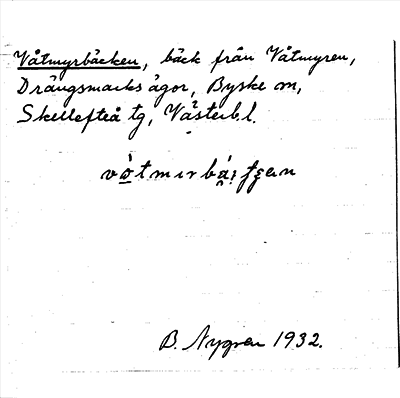 Våtmyrbäcken, bäck från Våtmyren,
Drängsmarks ägor, Byske sn,
Skellefteå tg, Västerb.l.
B. Nygren 1932.